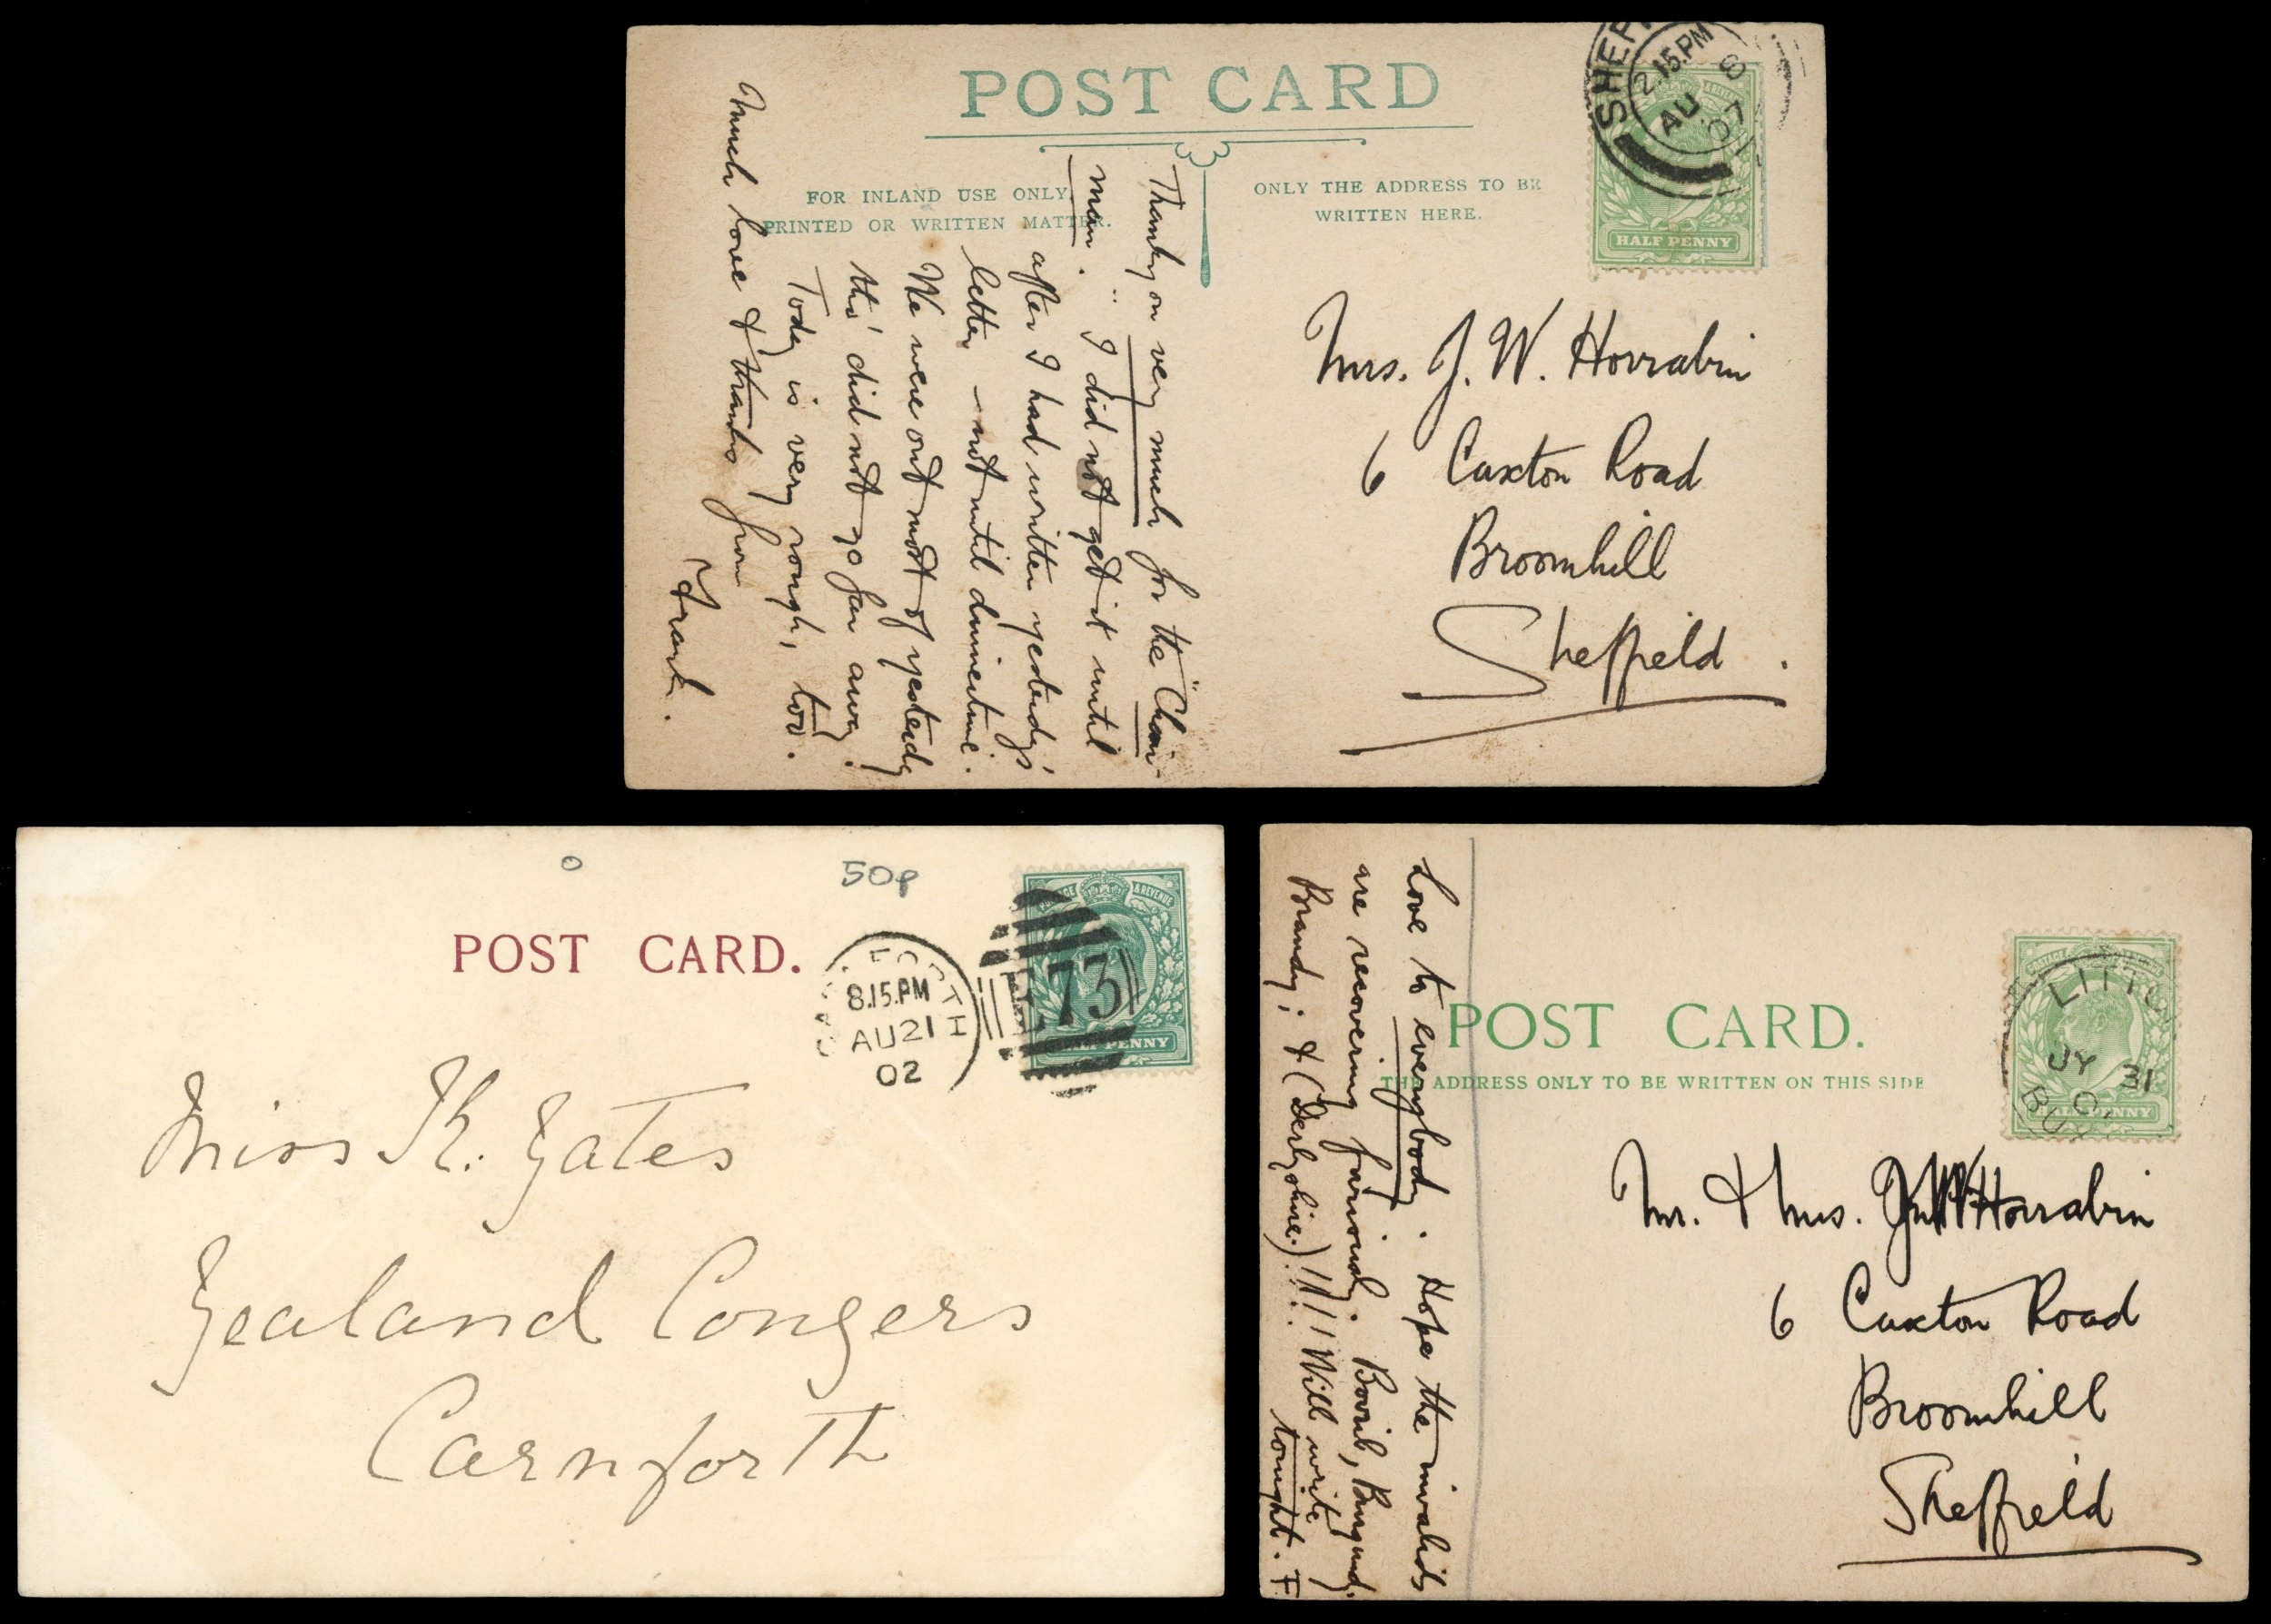 POST CARD
FOR INLAND USE ONLY
PRINTED OR WRITTEN MATTER.
ONLY THE ADDRESS TO BE
WRITTEN HERE.
SHEF
2.15.PM
8
AU
07
HALF PENNY
Thankyou very much for the "Chair-
man". I did not get it until
after I had written yesterday's
letter – not until dinnertime.
We were out most of yesterday
tho' did not go far away!
Today is very rough, too.
Much love & thanks from
Frank.
Mrs. J. W. Horrabin
6 Caxton Road
Broomhill
Sheffield.
50p
POST CARD.
8.15.PM
AU 21
02
E73
POSTAGE & REVENUE
HALF PENNY
Miss K. Yates
Yealand Conyers
Carnforth
Love to everybody. Hope the invalids
are recovering furiously. Bovril, Burgundy.
Brandy; & (Derbyshire.)!!!! Will write
tonight. F
POST CARD.
THE ADDRESS ONLY TO BE WRITTEN ON THIS SIDE
LITTL
JY 31
0
BUX
HALF PENNY
Mr. & Mrs. J W Horrabin
6 Caxton Road
Broomhill
Sheffield